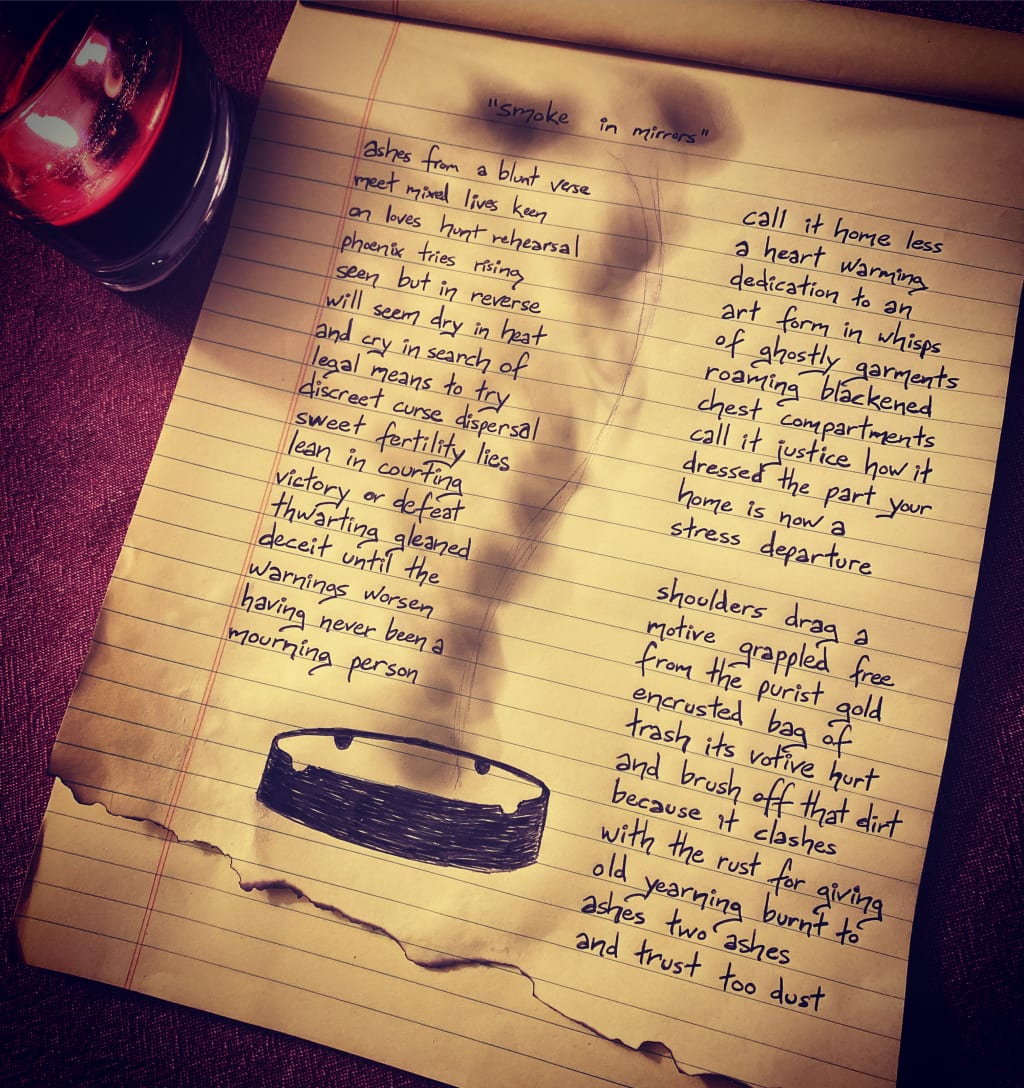 "smoke in mirrors"
ashes from a blunt verse
meet mixed lives keen
on loves hunt rehearsal
phoenix tries rising
seen but in reverse
will seem dry in heat
and cry in search of
legal means to try
discreet curse dispersal
sweet fertility lies
lean in courting
victory or defeat
thwarting gleaned
deceit until the
warnings worsen
having never been a
mourning person
call it home less
a heart warming
dedication to an
art form in whisps
of ghostly garments
roaming blackened
chest compartments
call it justice how it
dressed the part your
home is now a
stress departure
shoulders drag a
motive grappled free
from the purist gold
encrusted bag of
trash its votive hurt
and brush off that dirt
because it clashes
with the rust for giving
old yearning burnt to
ashes two ashes
and trust too dust